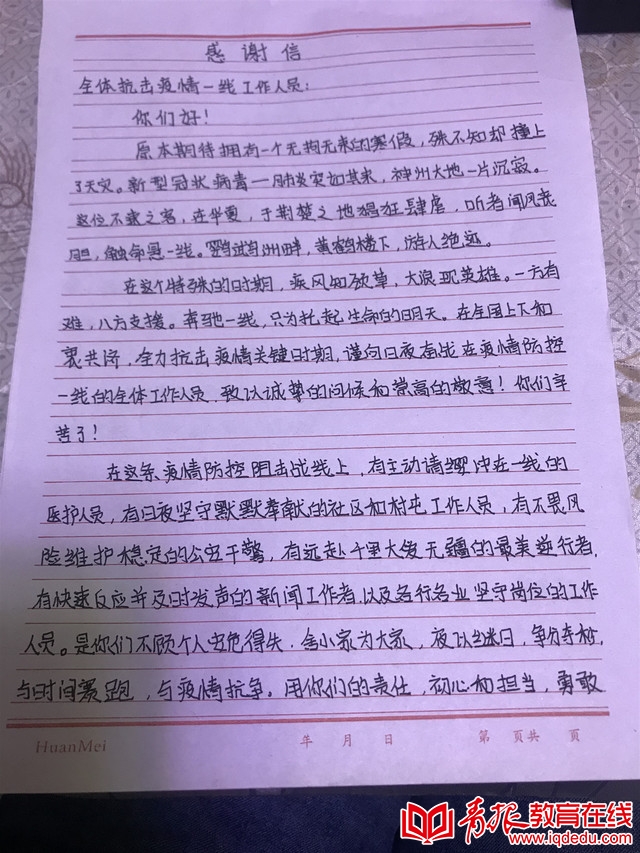 感谢信
全体抗击疫情一线工作人员：
你们好！
原本期待拥有一个无拘无束的寒假，殊不知却撞上
了天灾。新型冠状病毒——肺炎突如其来，神州大地一片沉寂。
这位不速之客，在华夏，于荆楚之地猖狂肆虐，听者闻风丧
胆，触命悬一线。鹦鹉洲畔，黄鹤楼下，游人绝迹。
在这个特殊的时期，疾风知劲草，大浪现英雄。一方有
难，八方支援。奔驰一线，只为托起生命的明天。在全国上下和
衷共济，全力抗击疫情关键时期，谨向日夜奋战在疫情防控
一线的全体工作人员，致以诚挚的问候和崇高的敬意！你们辛
苦了！
在这条疫情防控阻击战线上，有主动请缨冲在一线的
医护人员，有日夜坚守默默奉献的社区和村屯工作人员，有不畏风
险维护稳定的公安干警，有远赴千里大爱无疆的最美逆行者，
有快速反应并及时发声的新闻工作者，以及各行各业坚守岗位的工作
人员。是你们不顾个人安危得失，舍小家为大家，夜以继日，争分夺秒，
与时间赛跑，与疫情抗争。用你们的责任，初心和担当，勇敢
HuanMei 年 月 日 第 页共 页
青报教育在线
www.iqdedu.com